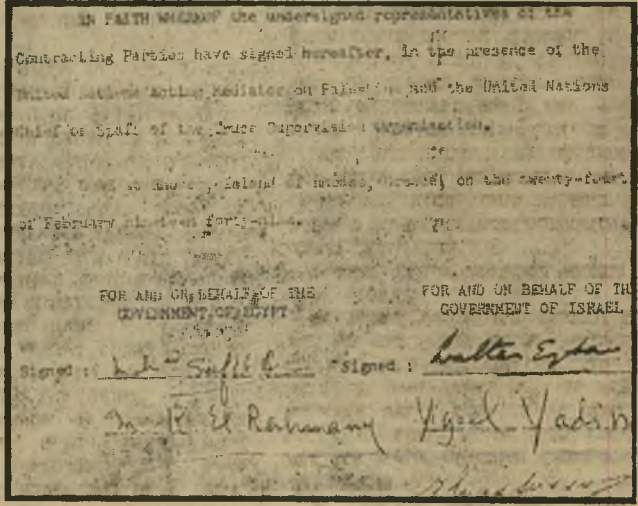 IN FAITH WHEREOF the undersigned representatives of the
Contracting Parties have signed hereafter, in the presence of the
United Nations Acting Mediator on Palestine and the United Nations
Chief of Staff of the Truce Supervision Organization.
Island of Rhodes, on the twenty-fourth
of February nineteen forty-nine.
FOR AND ON BEHALF OF THE
GOVERNMENT OF EGYPT
Signed :
El Rahmany
FOR AND ON BEHALF OF TH
GOVERNMENT OF ISRAEL
Signed : Walter Eytan
Yigael Yadin